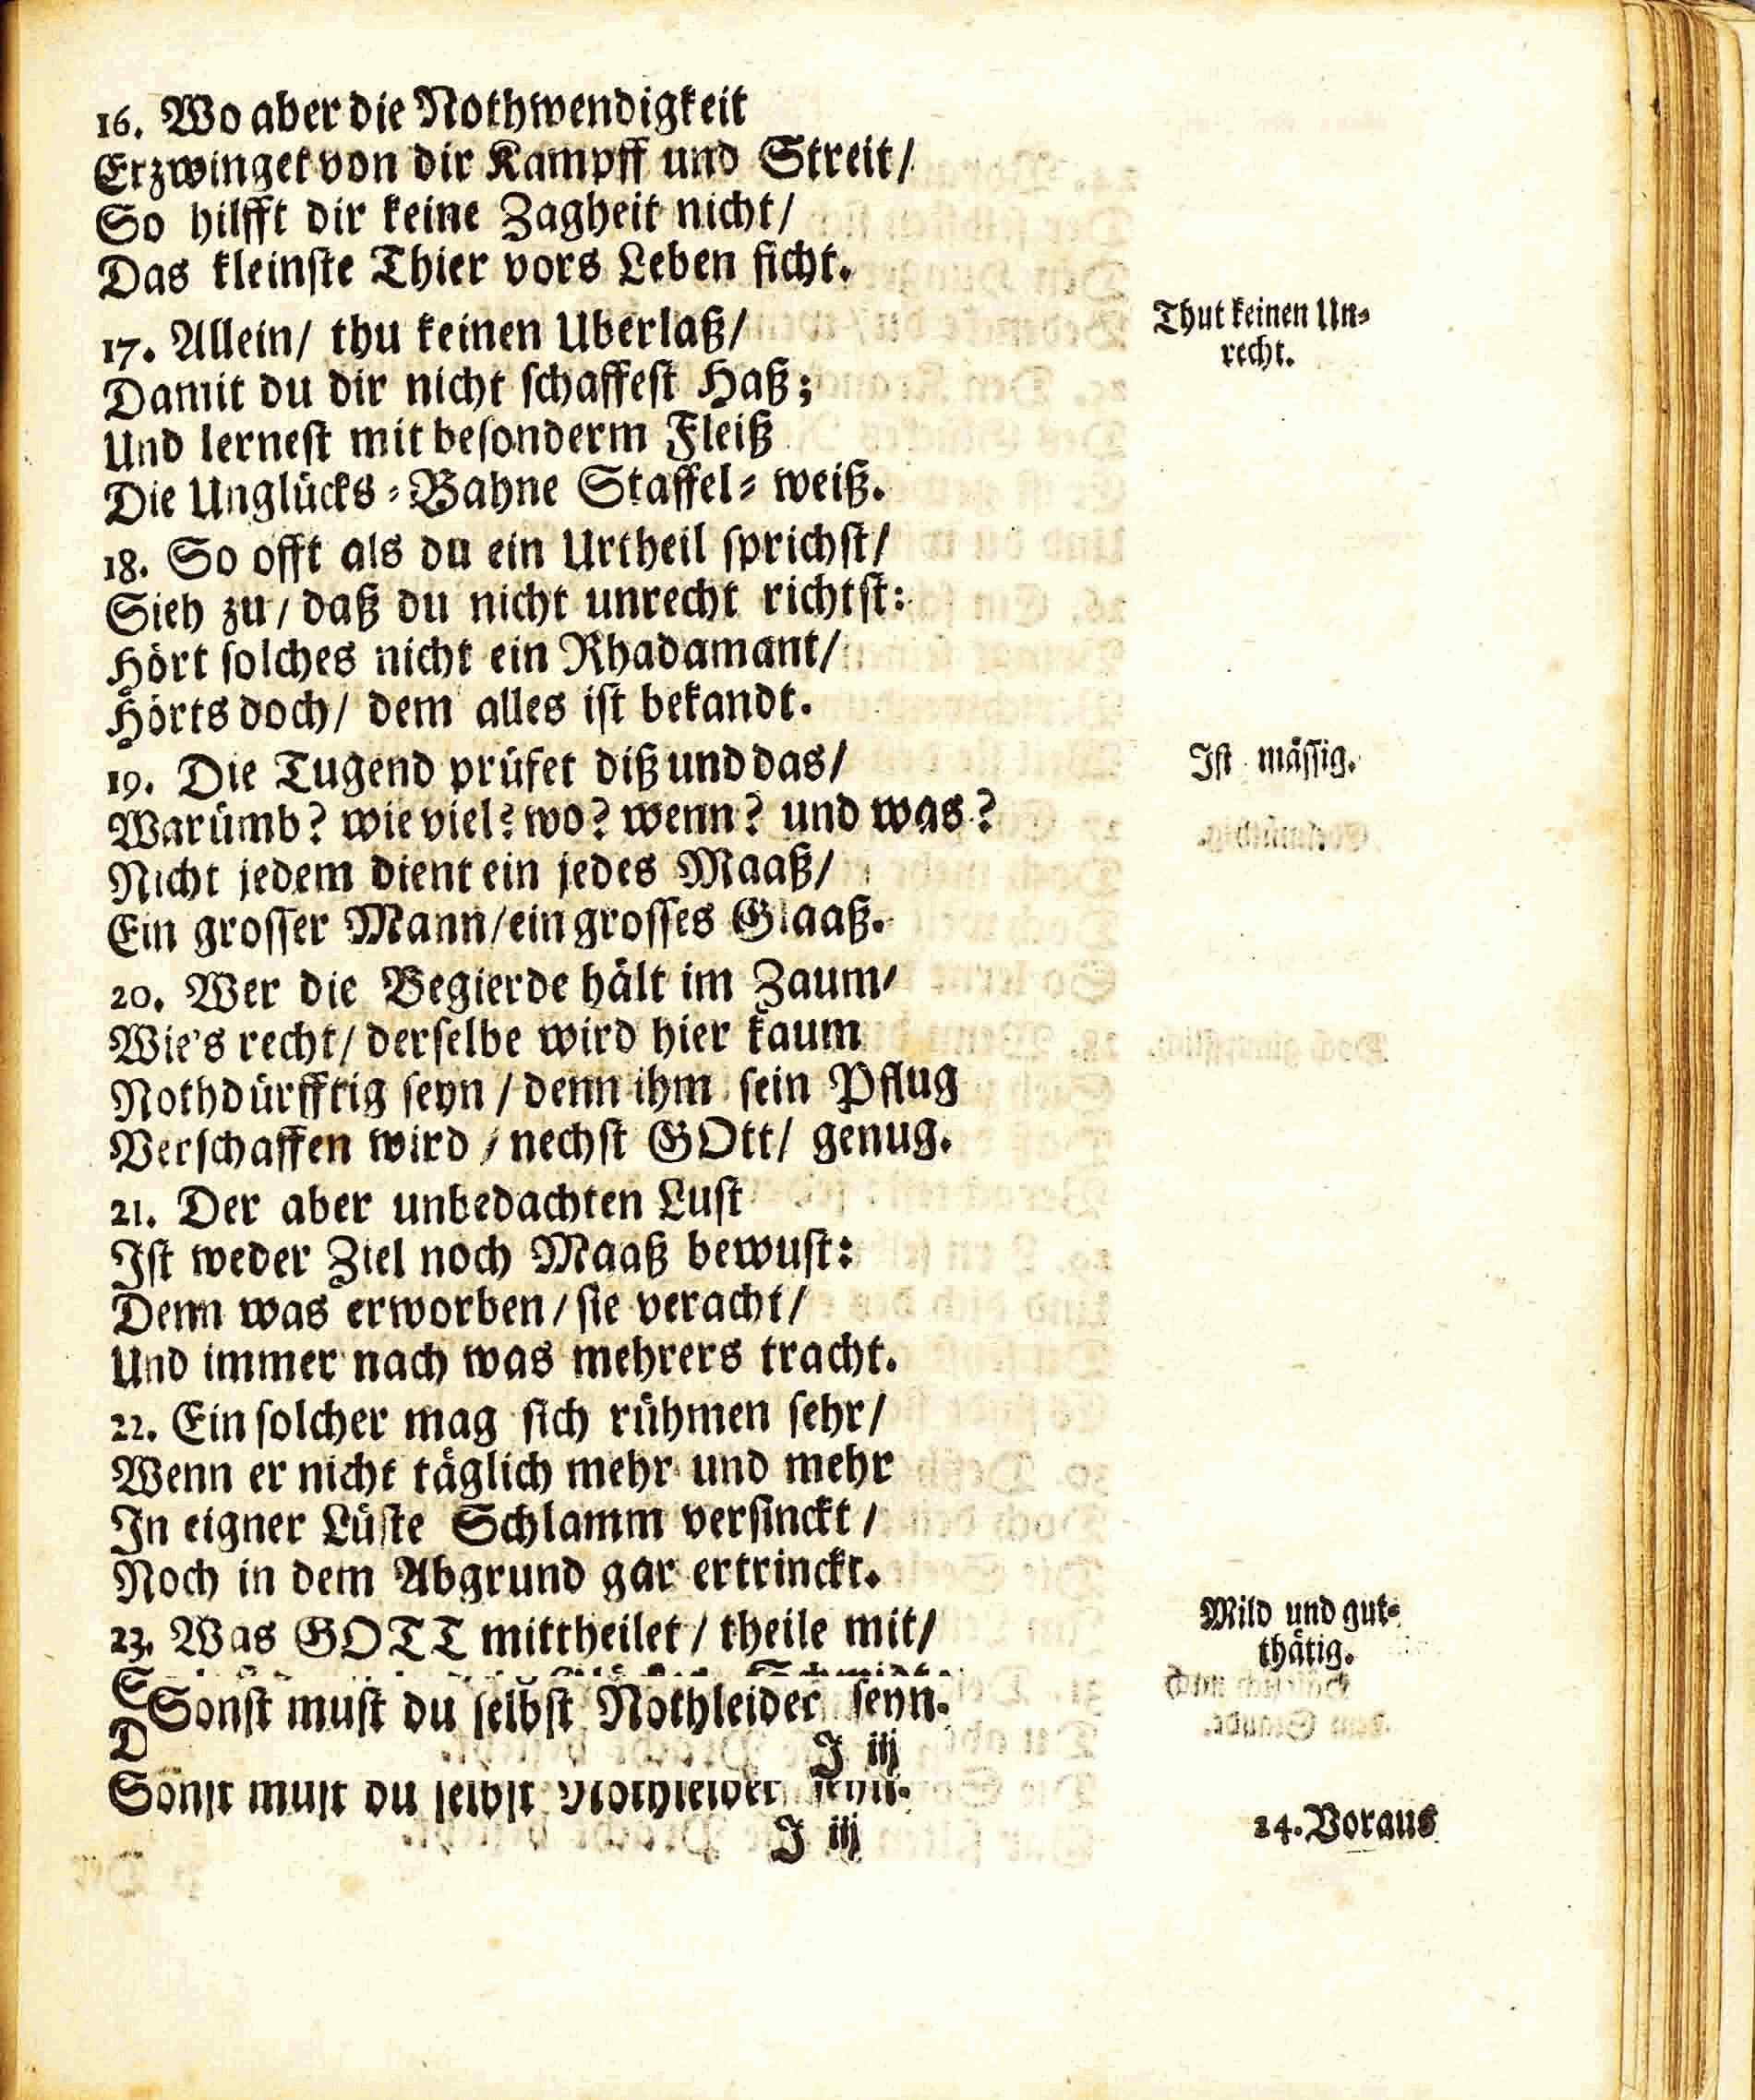 16. Wo aber die Nothwendigkeit
Erzwinget von dir Kampff und Streit/
So hilfft dir keine Zagheit nicht/
Das kleinste Thier vors Leben ficht.
17. Allein/ thu keinen Uberlaß/
Thut keinen Un-
recht.
Damit du dir nicht schaffest Haß;
Und lernest mit besonderm Fleiß
Die Unglücks-Bahne Staffel-weiß.
18. So offt als du ein Urtheil sprichst/
Sieh zu/ daß du nicht unrecht richtst:
Hört solches nicht ein Rhadamant/
Hörts doch/ dem alles ist bekandt.
19. Die Tugend prüfet diß und das/
Ist mässig.
Warümb? wie viel? wo? wenn? und was?
Nicht jedem dient ein jedes Maaß/
Ein grosser Mann/ ein grosses Glaaß.
20. Wer die Begierde hält im Zaum/
Wie's recht/ derselbe wird hier kaum
Nothdürfftig seyn/ denn ihm sein Pflug
Verschaffen wird/ nechst GOtt/ genug.
21. Der aber unbedachten Lust
Ist weder Ziel noch Maaß bewust:
Denn was erworben/ sie veracht/
Und immer nach was mehrers tracht.
22. Ein solcher mag sich rühmen sehr/
Wenn er nicht täglich mehr und mehr
In eigner Lüste Schlamm versinckt/
Noch in dem Abgrund gar ertrinckt.
23. Was GOTT mittheilet/ theile mit/
Mild und gut-
thätig.
Sonst must du selbst Nothleider seyn.
J iij
Sonst must du selbst Nothleider seyn.
J iij
24. Voraus